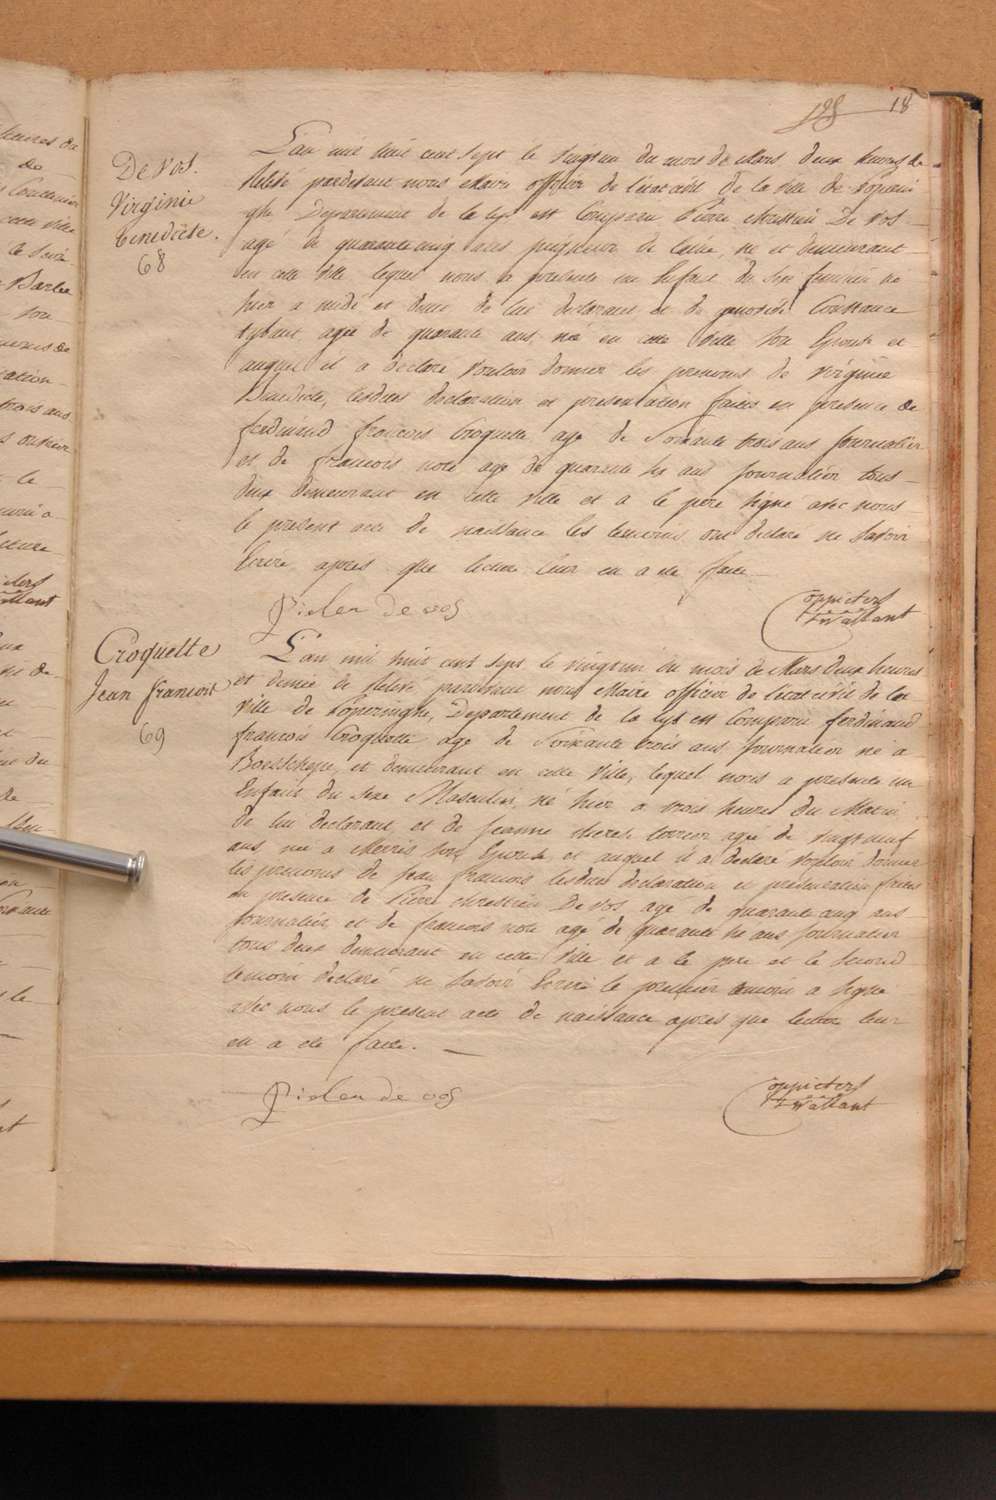 18
De Vos.
Virginie
benedicte.
68
L'an mil huit cent sept le vingtun du mois de Mars deux heures de
Relevé pardevant nous Maire officier de l'état civil de la ville de Poperin
ghe Departement de la Lys est Comparu Pierre Chrestien De Vos
agé de quarante cinq ans peigneur de laine, né et demeurant
en cette ville lequel nous a presenté un Enfant du sexe feminin né
hier a midi et demie de lui declarant et de Constance
agée de quarante ans née en cette ville son Epouse et
auquel il a declaré vouloir donner les prenoms de Virginie
Benedicte, lesdites declaration et presentation faites en presence de
ferdinand francois Croquette agé de Soixante trois ans Journalier
et de francois note agé de quarante six ans Journalier tous
deux demeurant en cette ville et a le pere signé avec nous
le present acte de naissance les temoins ont declaré ne savoir
Ecrire apres que lecture leur en a été faite
de vos
Coppieters
t'Wallant
Croquette
Jean francois
69
L'an mil huit cent sept le vingtun du mois de Mars deux heures
et demie de Relevé pardevant nous Maire officier de l'état civil de la
ville de Poperinghe, Departement de la Lys est Comparu ferdinand
francois Croquette agé de Soixante trois ans Journalier né a
Boeschepe, et demeurant en cette ville, lequel nous a presenté un
Enfant du sexe Masculin, né hier a trois heures du Matin
de lui declarant, et de Jeanne agée de vingt neuf
ans, née a Merris son Epouse, et auquel il a declaré vouloir donner
les prenoms de Jean francois lesdites declaration et presentation faites
en presence de Pierre Chrestien De Vos agé de quarante cinq ans
Journalier, et de francois note agé de quarante six ans Journalier
tous deux demeurant en cette ville et a le pere et le second
temoin declaré ne savoir Ecrire le premier temoin a signé
avec nous le present acte de naissance apres que lecture leur
en a été faite.
de vos
Coppieters
t'Wallant